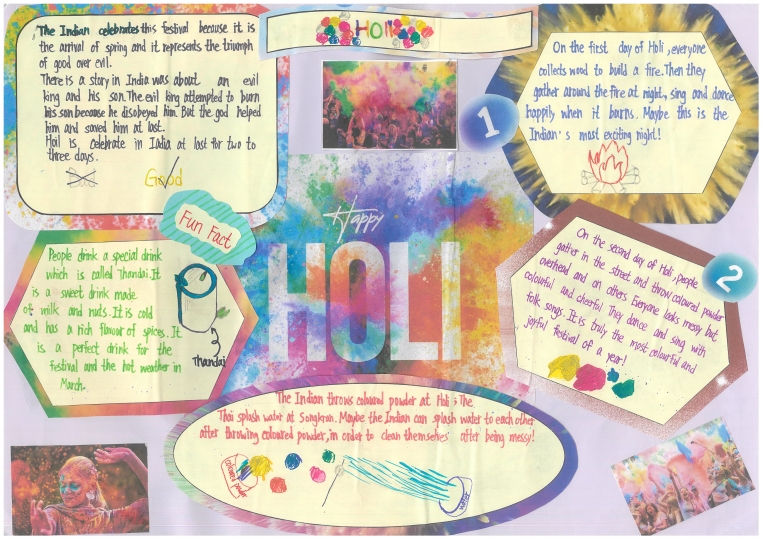 HOLI
The Indian celebrates this festival because it is
the arrival of spring and it represents the triumph
of good over evil.
There is a story in India was about an evil
king and his son. The evil king attempted to burn
his son because he disobeyed him. But the god helped
him and saved him at last.
Holi is celebrate in India at last for two to
three days.
Good
1
On the first day of Holi, everyone
collects wood to build a fire. Then they
gather around the fire at night, sing and dance
happily when it burns. Maybe this is the
Indian's most exciting night!
Fun Fact
People drink a special drink
which is called Thandai. It
is a sweet drink made
of milk and nuts. It is cold
and has a rich flavour of spices. It
is a perfect drink for the
festival and the hot weather in
March.
Thandai
Happy
HOLI
2
On the second day of Holi, people
gather in the street and throw coloured powder
overhead and on others. Everyone looks messy but
colourful and cheerful. They dance and sing with
folk songs. It is truly the most colourful and
joyful festival of a year!
The Indian throws coloured powder at Holi; The
Thai splash water at Songkran. Maybe the Indian can splash water to each other
after throwing coloured powder, in order to clean themselves after being messy!
coloured powder
water